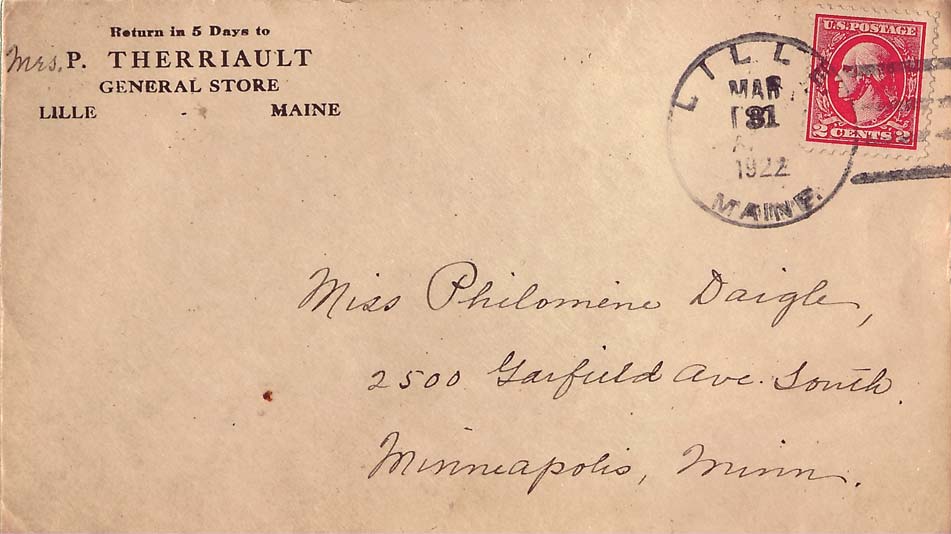 Return in 5 Days to
Mrs. P. THERRIAULT
GENERAL STORE
LILLE - MAINE
U.S. POSTAGE
2 CENTS 2
LILLE
MAR
31
A.
1922
MAINE.
Miss Philomène Daigle,
2500 Garfield Ave. South.
Minneapolis, Minn.